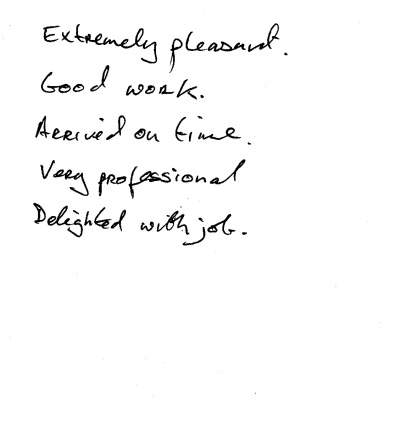 Extremely pleasant.
Good work.
Arrived on time.
Very professional
Delighted with job.